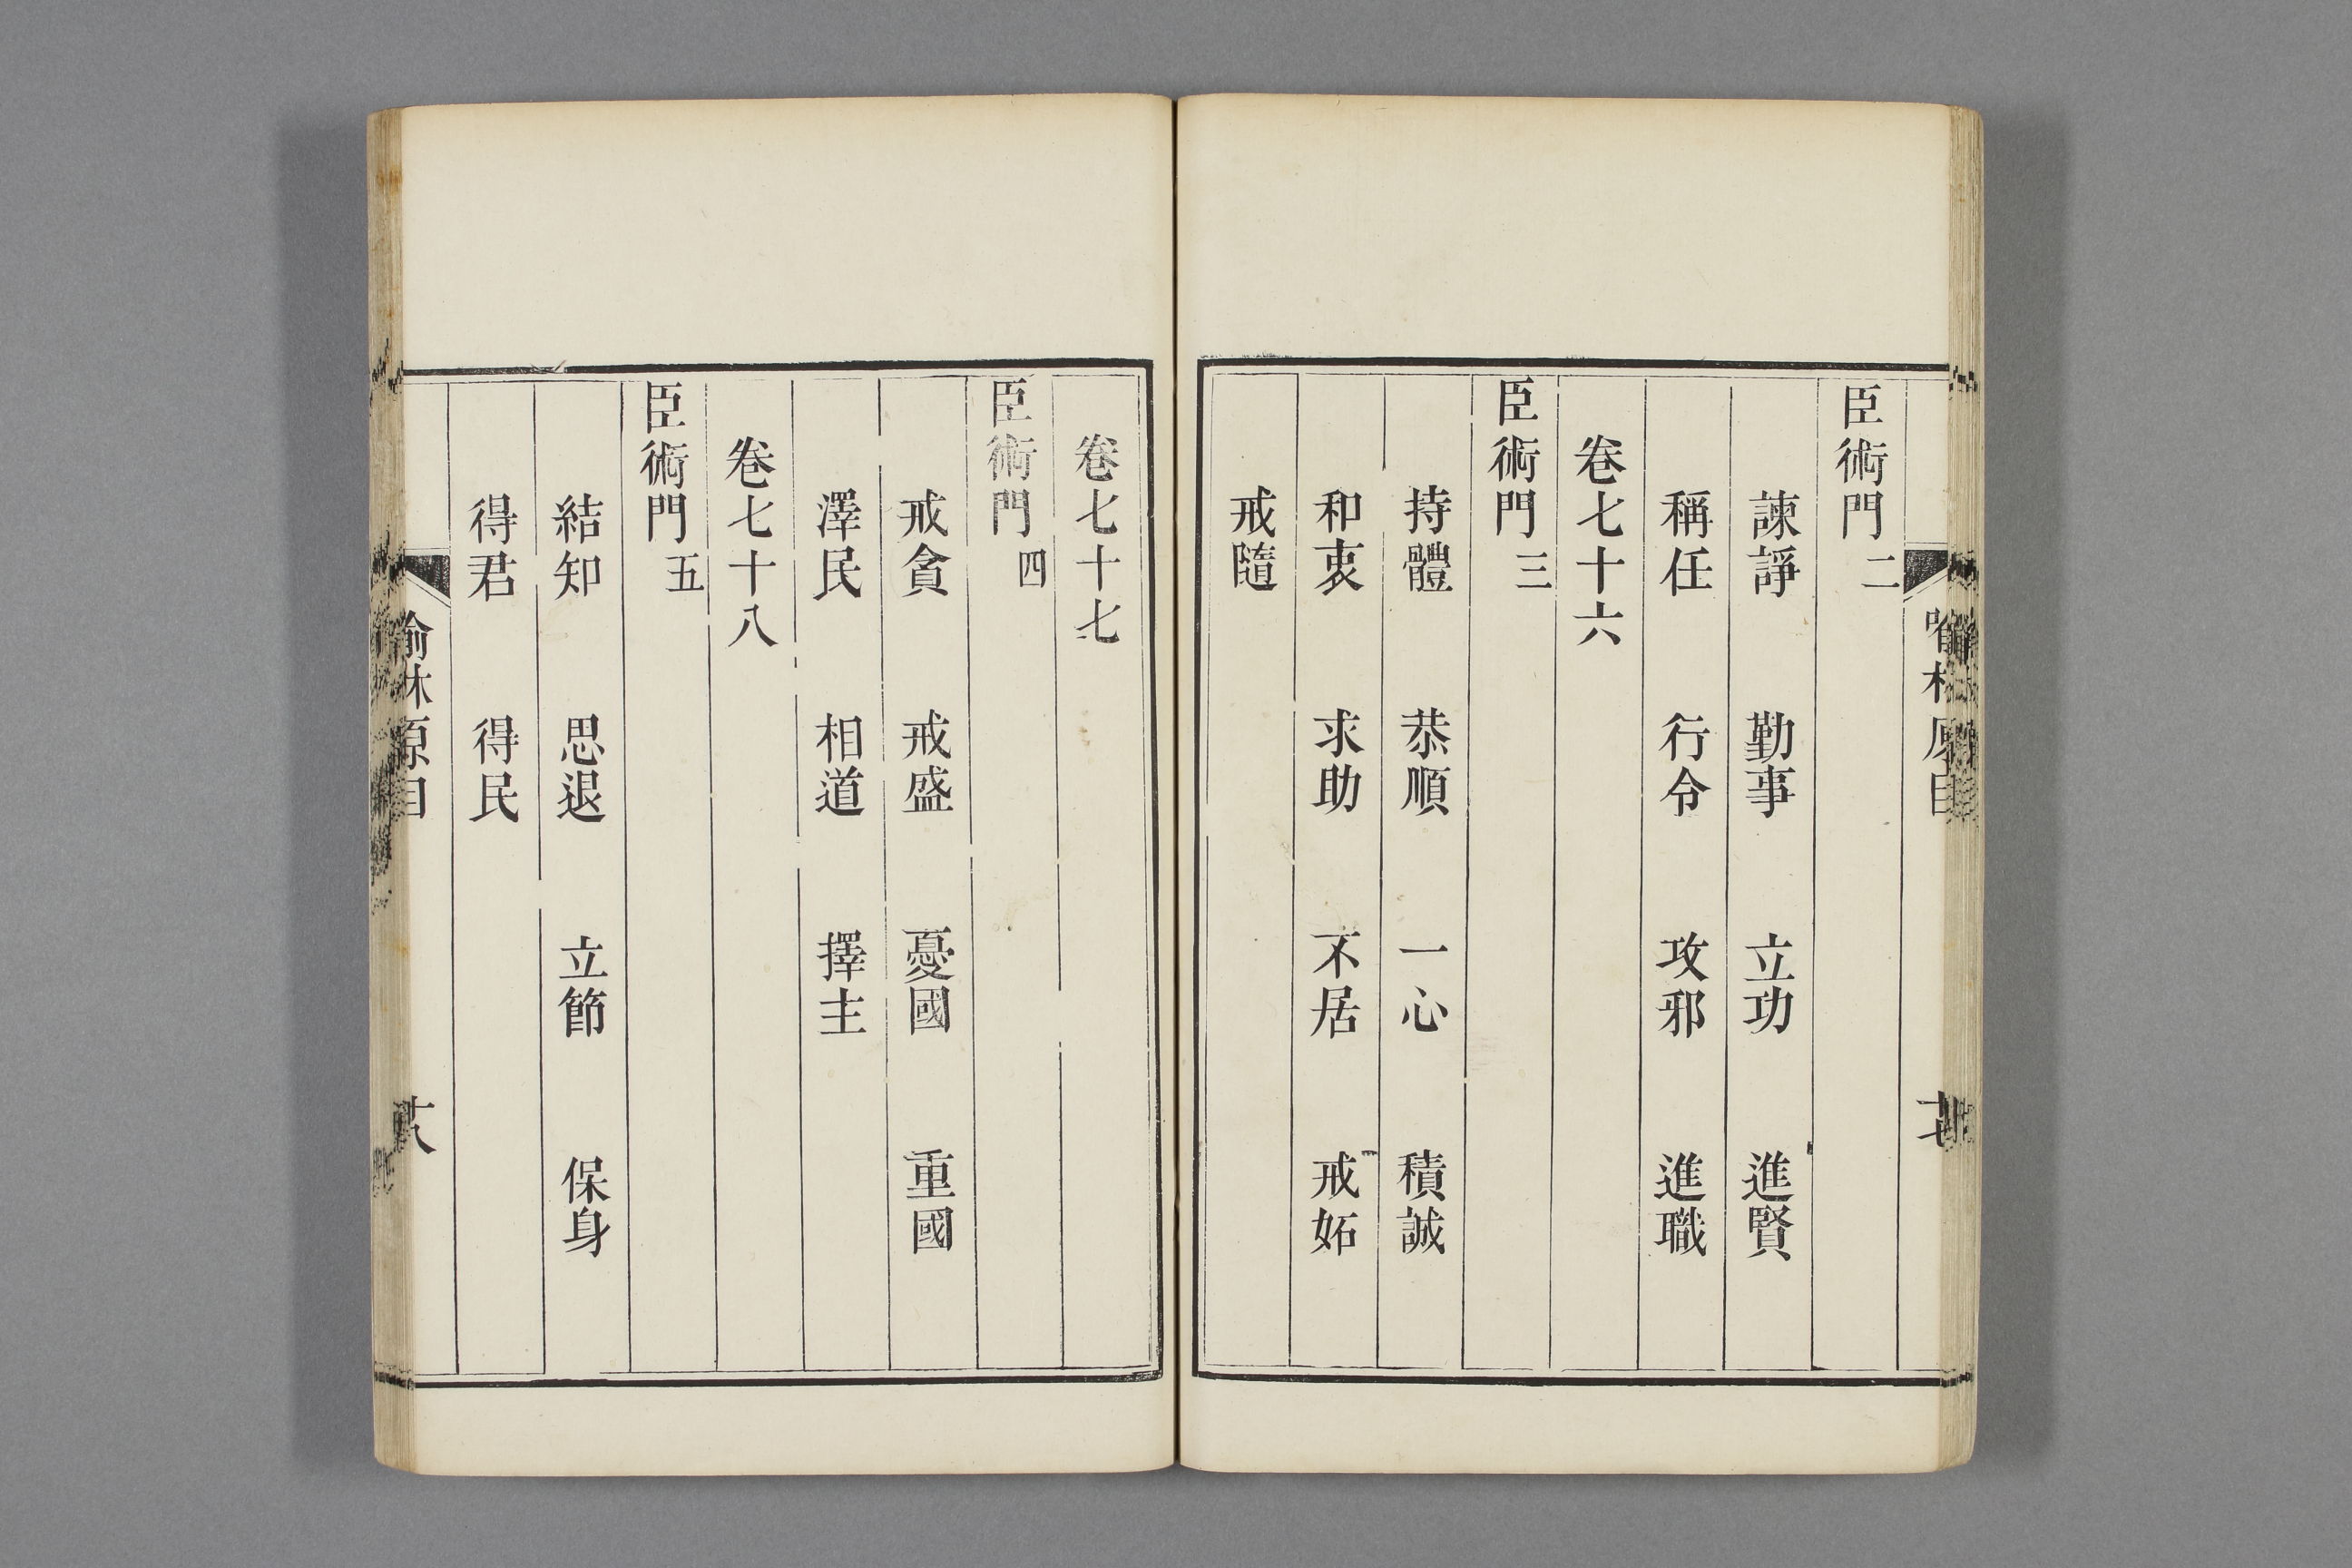 臣術門二
諫諍　勤事　立功　進賢
稱任　行令　攻邪　進職
卷七十六
臣術門三
持體　恭順　一心　積誠
和衷　求助　不居　戒妬
戒隨
卷七十七
臣術門四
戒貪　戒盛　憂國　重國
澤民　相道　擇主
卷七十八
臣術門五
結知　思退　立節　保身
得君　得民